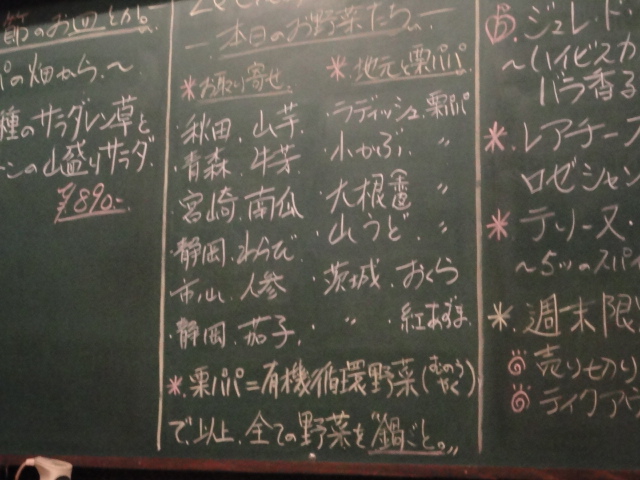 節のお
パの畑から。～
種のサラダレン草と、
ーンの山盛りサラダ
¥890-
―本日のお野菜たち。―
*お取り寄せ
・秋田、山芋
・青森、牛芋
・宮崎、南瓜
・静岡、わらび
・市山、人参
・静岡、茄子、
*地元と栗パパ
・ラディッシュ、栗パパ
・小かぶ、〃
・大根 〃
・山うど、〃
・茨城、おくら
・〃 紅あずま
*栗パパ=有機循環野菜(むのうやく)
で、以上、全ての野菜を"鍋ごと。"
ジュレ、ド
～ハイビスカ
バラ香る
*レアチーズ
ロゼシャン
*テリーヌ・
～5ツのスパイ
*週末限
売り切り
テイクアウ